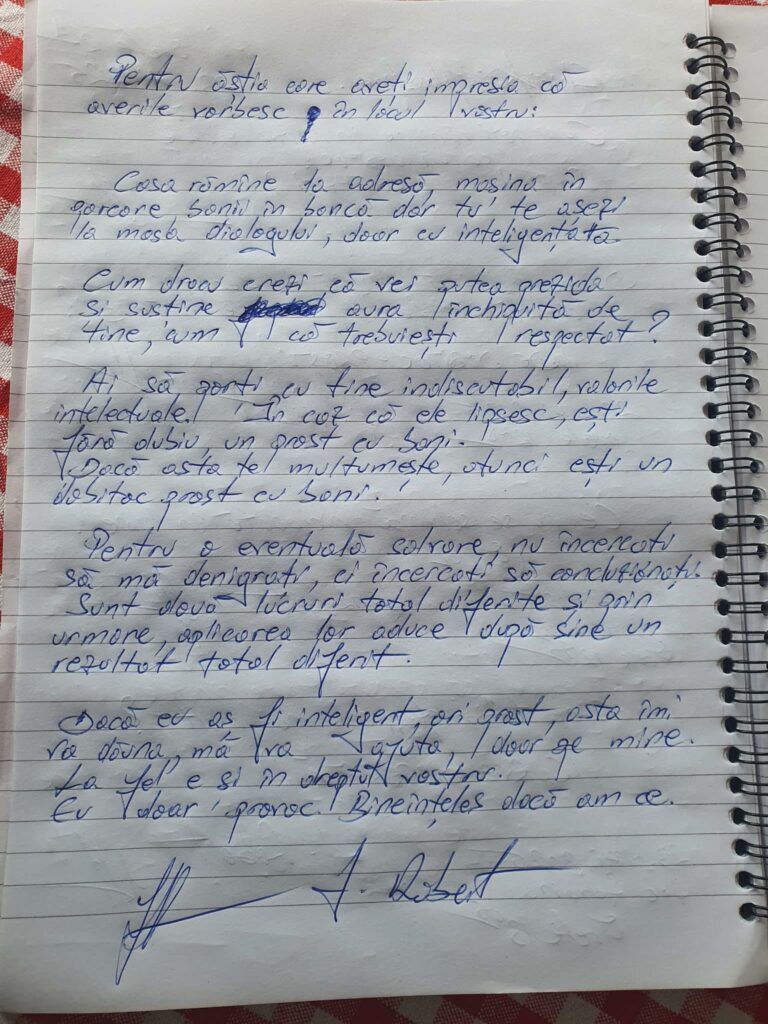 Pentru ăștia care aveți impresia că
averile vorbesc, în locul vostru:
Casa rămîne la adresă, mașina în
parcare banii în bancă dar tu te asezi
la masa dialogului, doar cu inteligența ta.
Cum dracu crezi că vei putea prezida
si sustine aura închipuită de
tine, cum că trebuiești respectat?
Ai să porti cu tine indiscutabil, valorile
intelectuale. În caz că ele lipsesc, ești
fără dubiu, un prost cu bani.
Dacă asta te multumește, atunci ești un
dobitoc prost cu bani.
Pentru o eventuală salvare, nu încercati
să mă denigrati, ci încercati să concluzionați.
Sunt două lucruri total diferite si prin
urmare, aplicarea lor aduce după sine un
rezultat total diferit.
Dacă eu aș fi inteligent, ori prost, asta îmi
va dăuna, mă va ajuta, doar pe mine.
La fel e si în dreptul vostru.
Eu doar provoc. Bineințeles dacă am ce.
J. Robert